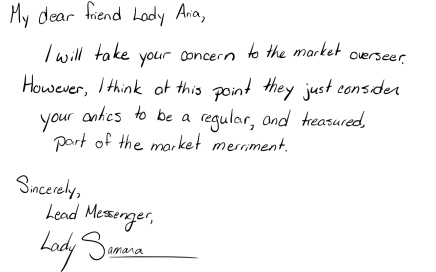 My dear friend Lady Aria,
I will take your concern to the market overseer.
However, I think at this point they just consider
your antics to be a regular, and treasured,
part of the market merriment.
Sincerely,
Lead Messenger,
Lady Samara